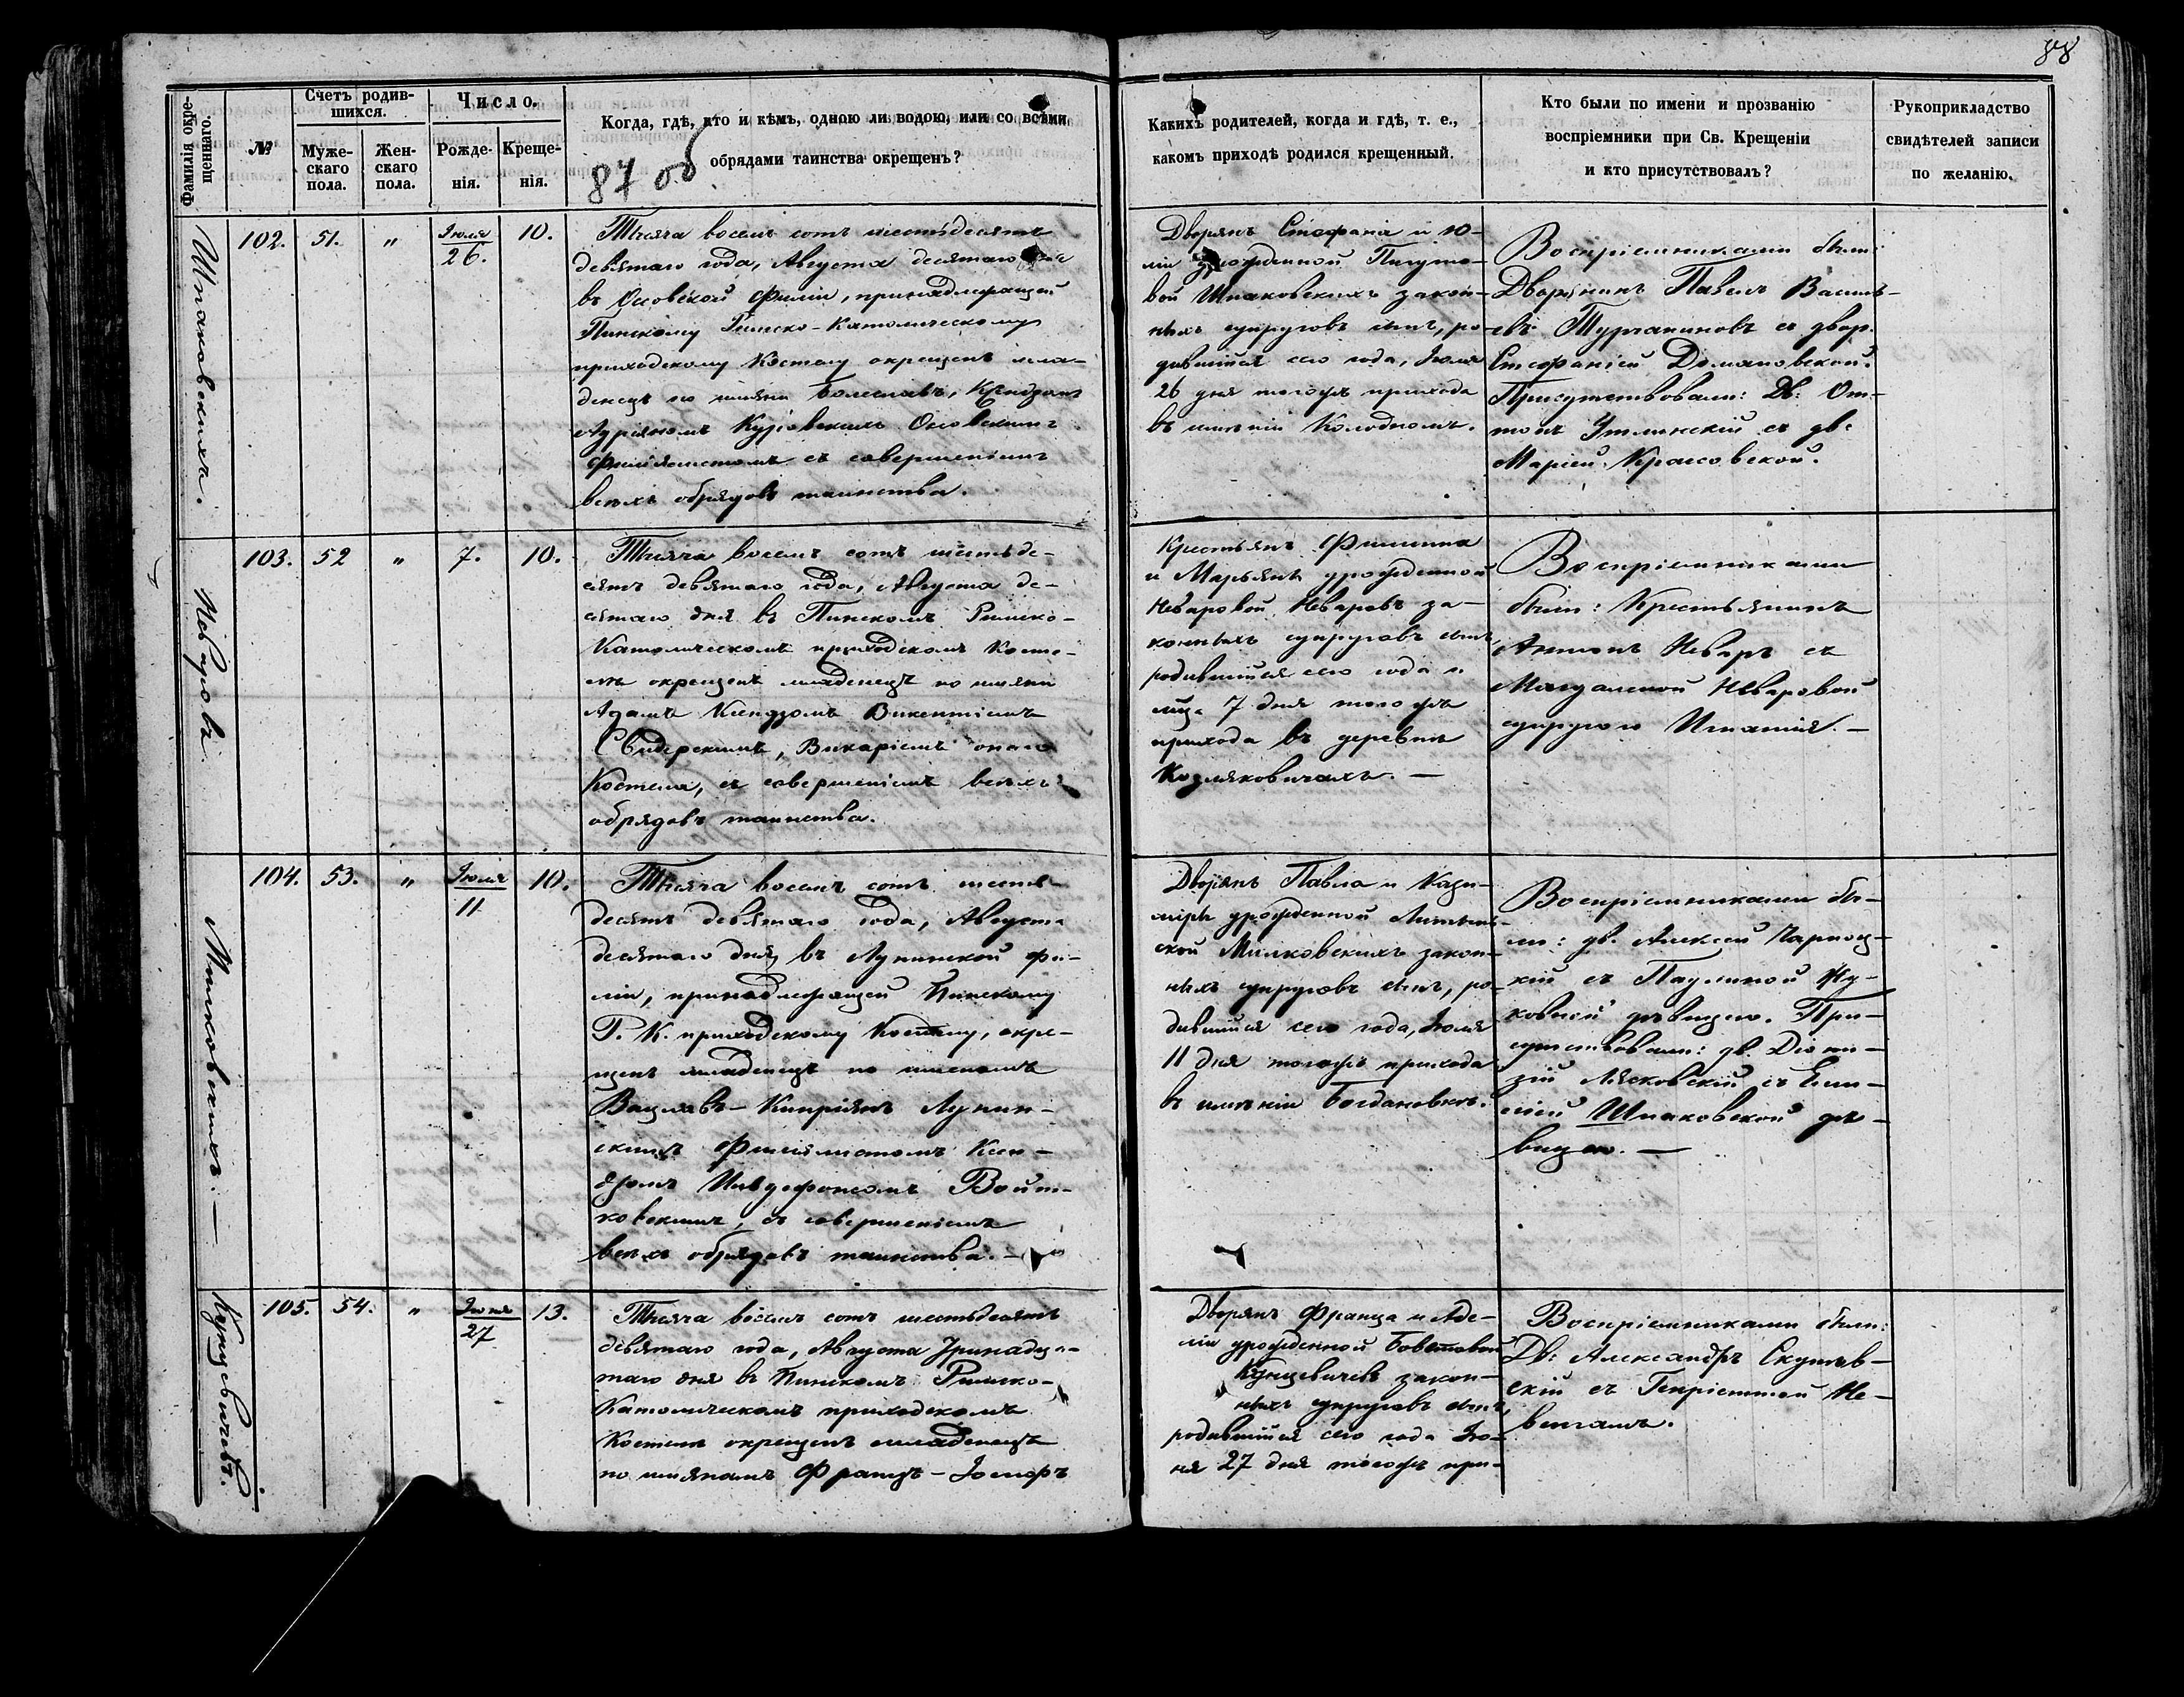 88
Фамилія окрещеннаго.
№
Счетъ родив-
шихся.
Муже-
скаго
пола.
Жен-
скаго
пола.
Число.
Рожде-
нія.
Креще-
нія.
Когда, гдѣ, кто и кѣмъ, одною ли водою, или со всѣми
обрядами таинства окрещенъ?
87 об
Какихъ родителей, когда и гдѣ, т. е.,
какомъ приходѣ родился крещенный.
Кто были по имени и прозванію
воспріемники при Св. Крещеніи
и кто присутствовалъ?
Рукоприкладство
свидѣтелей записи
по желанію.
Шпаковскихъ.
102.
51.
"
Іюля
26.
10.
Тысяча восемь сотъ шестьдесятъ
девятаго года, Августа десятаго дня
въ филіи, принадлежащей
Пинскому Римско-Католическому
приходскому Костелу окрещенъ мла-
денецъ по имяни Болеславъ, Ксендзомъ
съ совершеніемъ
всѣхъ обрядовъ таинства.
Дворянъ Стефана и Ю-
ліи урожденной
вой Шпаковскихъ закон-
ныхъ супруговъ сынъ, ро-
дившійся сего года, Іюля
26 дня тогожъ прихода
въ имѣніи Колодномъ.
Воспріемниками были:
Дворянинъ Павелъ
евъ Турчаниновъ съ двор.
Стефаніей Домановской.
Присутствовали: Дв: Ан-
тонъ съ дв:
Маріей Красовской.
Неваровъ.
103.
52
"
7.
10.
Тысяча восемь сотъ шестьде-
сятъ девятаго года, Августа де-
сятаго дня въ Пинскомъ Римско-
Католическомъ приходскомъ Косте-
лѣ окрещенъ младенецъ по имяни
Адамъ Ксендзомъ Викентіемъ
Свидерскимъ, Викаріемъ онаго
Костела, съ совершеніемъ всѣхъ
обрядовъ таинства.
Крестьянъ Филиппа
и Марьяны урожденной
Неваровой Неваровъ за-
конныхъ супруговъ сынъ,
родившійся сего года и
мца 7 дня тогожъ
прихода въ деревнѣ
Козляковичахъ. —
Воспріемниками
были: Крестьянинъ
Антонъ Неваръ съ
Магдаленой Неваровой
супругою Игнатія. —
Милковскихъ. —
104.
53.
"
Іюля
11
10.
Тысяча восемь сотъ шесть-
десятъ девятаго года, Августа
десятаго дня, въ Лунинской фи-
ліи, принадлежащей Пинскому
Р. К. приходскому Костелу, окре-
щенъ младенецъ по именамъ
Вацлавъ-Кипріянъ Лунин-
скимъ Филіялистомъ Ксен-
дзомъ Ильдефонсомъ Войт-
ковскимъ, съ совершеніемъ
всѣхъ обрядовъ таинства. —
Дворянъ Павла и Кази-
міры урожденной
ской Милковскихъ закон-
ныхъ супруговъ сынъ, ро-
дившійся сего года, Іюля
11 дня тогожъ прихода
въ имѣніи Богдановкѣ.
Воспріемниками бы-
ли: дв. Алексей Чарноц-
кій съ Паулиной Жу-
ковной дѣвицею. При-
сутствовали: дв. Діони-
зій Лясковскій съ Еми-
ліей Шпаковской дѣ-
вицею. —
Кунцевичевъ.
105.
54.
"
Іюня
27
13.
Тысяча восемь сотъ шестьдесятъ
девятаго года, Августа Тринадца-
таго дня въ Пинскомъ Римско-
Католическомъ приходскомъ
Костелѣ окрещенъ младенецъ
по имянамъ Францъ-Іосифъ
Дворянъ Франца и Аде-
ліи урожденной
Кунцевичевъ закон-
ныхъ супруговъ сынъ,
родившійся сего года Ію-
ня 27 дня тогожъ при-
Воспріемниками были:
Дв: Александръ
скій съ Генріеттой